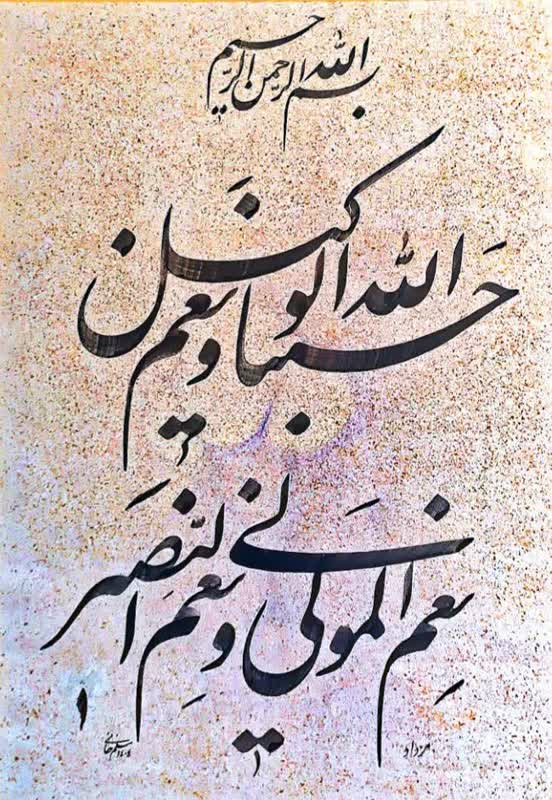 بسم الله الرحمن الرحیم
حسبنا الله و نعم الوکیل
نِعم المَولی و نِعم النَّصیر
مرداد